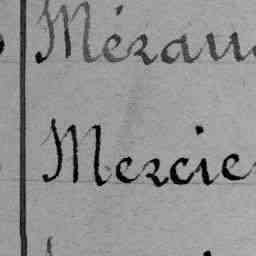 Mérau
Mercie